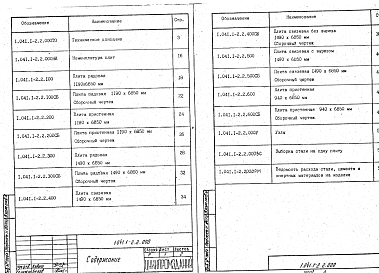 Обозначение Наименование Стр.
1.041.1-2.2.000ТО Техническое описание 3
1.041.1-2.2.000НИ Номенклатура плит 16
1.041.1-2.2.100 Плита рядовая
1190х6850 мм 18
1.041.1-2.2.100СБ Плита рядовая 1190 х 6850 мм
Сборочный чертеж 22
1.041.1-2.2.200 Плита пристенная
1190 х 6850 мм 24
1.041.1-2.2.200СБ Плита пристенная 1190 х 6850 мм
Сборочный чертеж 26
1.041.1-2.2.300 Плита рядовая
1490 х 6850 мм 28
1.041.1-2.2.300СБ Плита рядовая 1490 х 6850 мм
Сборочный чертеж 32
1.041.1-2.2.400 Плита связевая
1490 х 6850 мм 34
1.041.1-2.2.000
Содержание
Обозначение Наименование
1.041.1-2.2.400СБ Плита связевая без выреза
1490 х 6850 мм
Сборочный чертеж
1.041.1-2.2.500 Плита связевая с вырезом
1490 х 6850 мм
1.041.1-2.2.500СБ Плита связевая 1490 х 6850 мм
Сборочный чертеж
1.041.1-2.2.600 Плита пристенная
940 х 6850 мм
1.041.1-2.2.600СБ Плита пристенная 940 х 6850 мм
Сборочный чертеж
1.041.1-2.2.000У Узлы
Выборка стали на одну плиту
Ведомость расхода стали, цемента и
инертных материалов на изделия
1.041.1-2.2.000